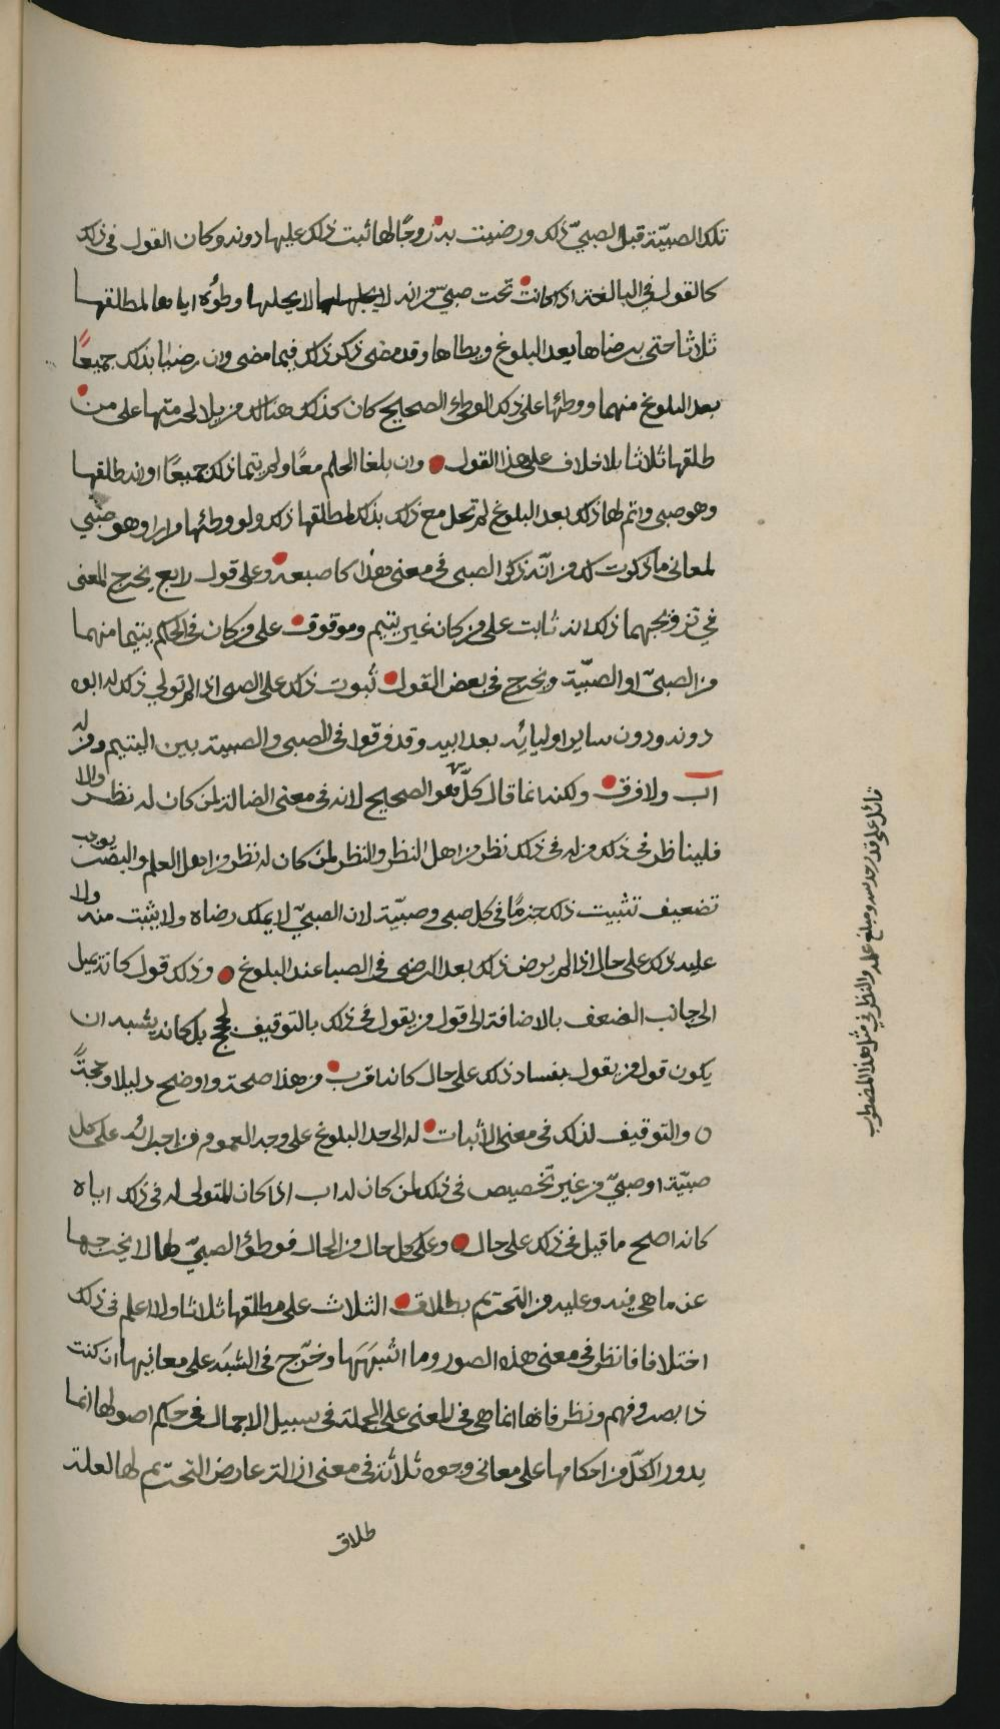 تلك الصبيّة قبل الصبيّ ذلك ورضيت به زوجًا لها ثبت ذلك عليها دونه وكان القول في ذلك
كالقول في البالغة اذا كانت تحت صبيّ من انه لا يحلها وطؤه اياها لمطلقها
ثلاثا حتى يرضاها بعد البلوغ ويطاها وقد مضى ذكر ذلك فيما مضى وان رضيا بذلك جميعًا
بعد البلوغ منهما ووطئها على ذلك الوطئ الصحيح كان كذلك هنالك مزيلا لحرمتها على من
طلقها ثلاثا بلا خلاف على هذا القول وان بلغا الحلم معًا ولم يتما ذلك جميعًا او انه طلقها
وهو صبي واتم لها ذلك بعد البلوغ لم تحل مع ذلك بذلك لمطلقها ذلك ولو وطئها مرارا وهو صبي
لمعاني ما ذكرت لك من انّ ذكر الصبي في معنى هذا كاصبعه وعلى قول رابع يخرج المعنى
في تزويجهما ذلك انه ثابت على من كان غير يتيم وموقوف على من كان في الحكم يتيما منهما
من الصبيّ او الصبيّة ويخرج في بعض القول ثبوت ذلك على الصبي اذا لم تولي ذلك له ابوه
دونه ودون ساير اوليائه بعد ابيه وقد فرقوا في الصبي والصبية بين اليتيم ومن له
اب ولا فرق ولكنه انما قال كلّ هو الصحيح لانه في معنى الضالة لمن كان له نظر والا
فليناظر في ذلك من له في ذلك نظر من اهل النظر والنظر لمن كان له نظر من اهل العلم والبصر يوجب
تضعيف تثبيت ذلك جزمًا في كل صبي وصبيّة لان الصبيّ لا يملك رضاه ولا يثبت منه ولا
عليه ذلك على حال اذا لم يرض ذلك بعد الرضى في الصبا عند البلوغ وذلك قول كانه يميل
الى جانب الضعف بالاضافة الى قول من يقول في ذلك بالتوقيف بل كانه يشبه ان
يكون قول من يقول بفساد ذلك على حال كانه اقرب من هذا صحة واوضح دليلا وحجةً
ه والتوقيف لذلك في معنى الاثبات له الى حد البلوغ على وجه العموم من اجرائه على كل
صبيّة او صبيّ من غير تخصيص في ذلك لمن كان له اب اذا كان المتولى له في ذلك اياه
كانه اصح ما قيل في ذلك على حال وعلى كل حال من الحال فوطؤ الصبيّ لها لا يخرجها
عن ما هي فيه وعليه من التحريم بطلاق الثلاث على مطلقها ثلاثا ولا اعلم في ذلك
اختلافا فانظر في معنى هذه الصور وما اشبهَهَا وخرّج في الشبَه على معانيها ان كنت
ذا بصر وفهم ونظر فانها انما هي في المعنى على الجملة في سبيل الاجمال في حكم اصولها انما
يدور الكلّ من احكامها على معاني وجوه ثلاثة في معنى ازالته عارض التحريم لها لعلة
طلاق
علمه والنظر في مثل هذا المضطرب